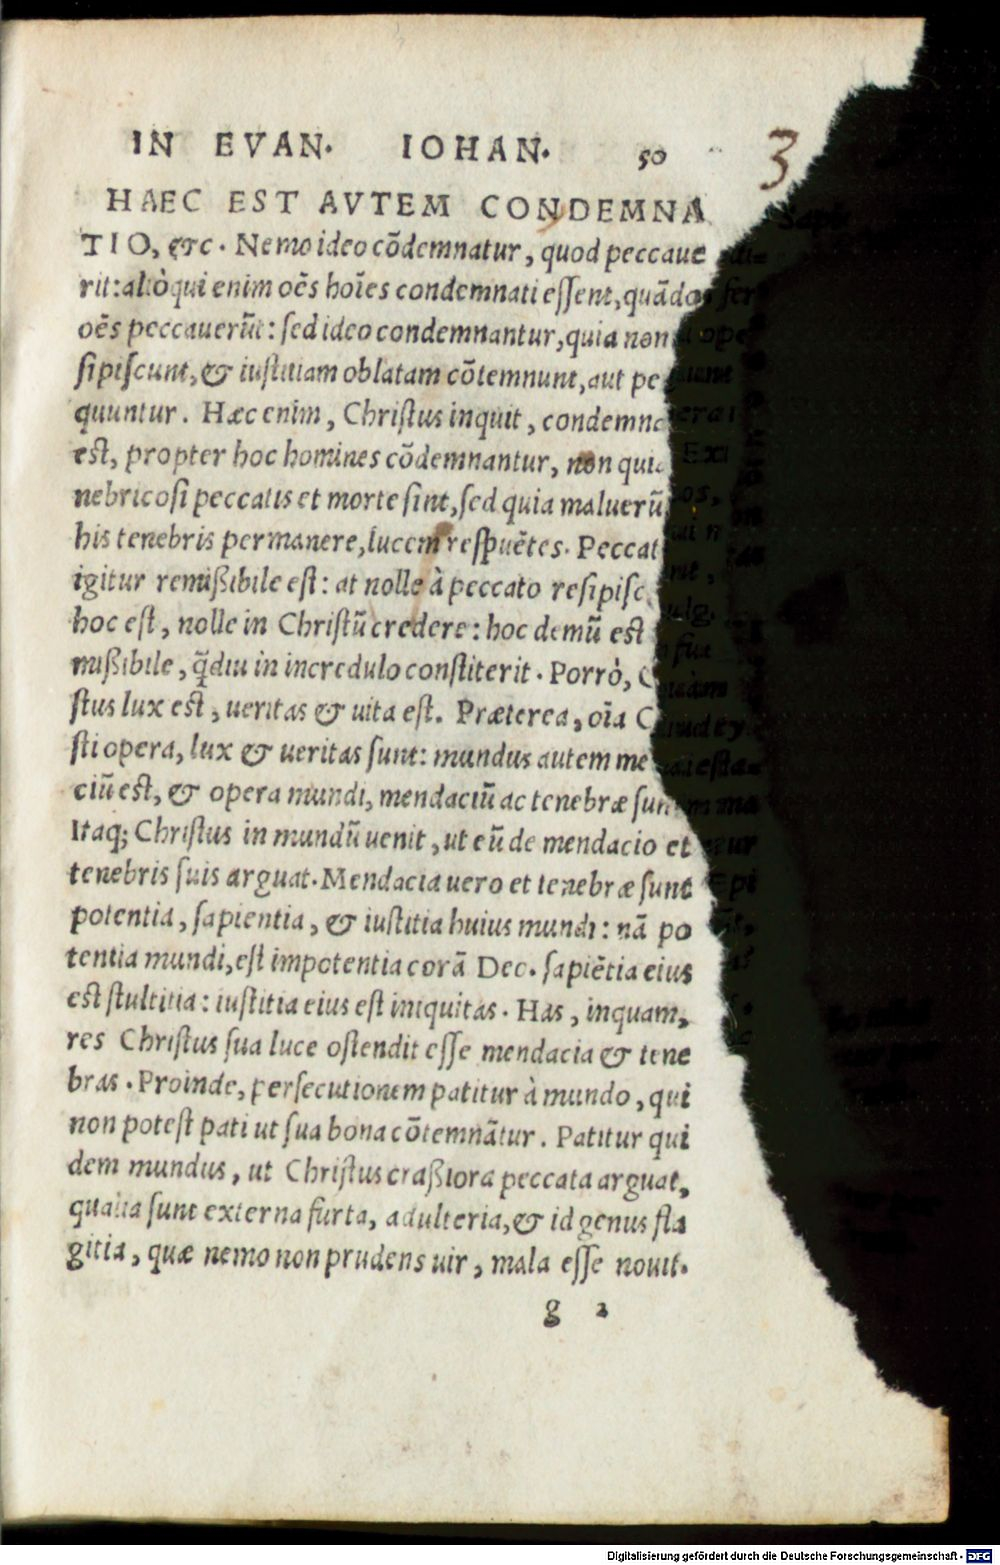 IN EVAN. IOHAN. 50
3
HAEC EST AVTEM CONDEMNA
TIO, &c. Nemo ideo cõdemnatur, quod peccaue
rit: aliòqui enim oẽs hoĩes condemnati essent, quãdo
oẽs peccauerũt: sed ideo condemnantur, quia non
sipiscunt, & iustitiam oblatam cõtemnunt, aut pe
quuntur. Hæc enim, Christus inquit, condemna
est, propter hoc homines cõdemnantur, non quia
nebricosi peccatis et morte sint, sed quia maluerũ
his tenebris permanere, lucem respuẽtes. Peccat
igitur remißibile est: at nolle à peccato resipisc
hoc est, nolle in Christũ credere: hoc demũ est
mißibile, q̃diu in incredulo constiterit. Porrò, C
stus lux est, ueritas & uita est. Præterea, oĩa C
sti opera, lux & ueritas sunt: mundus autem me
ciũ est, & opera mundi, mendaciũ ac tenebræ sun
Itaq; Christus in mundũ uenit, ut eũ de mendacio et
tenebris suis arguat. Mendacia uero et tenebræ sunt
potentia, sapientia, & iustitia huius mundi: nã po
tentia mundi, est impotentia corã Deo. sapiẽtia eius
est stultitia: iustitia eius est iniquitas. Has, inquam,
res Christus sua luce ostendit esse mendacia & tene
bras. Proinde, persecutionem patitur à mundo, qui
non potest pati ut sua bona cõtemnãtur. Patitur qui
dem mundus, ut Christus craßiora peccata arguat,
qualia sunt externa furta, adulteria, & id genus fla
gitia, quæ nemo non prudens uir, mala esse nouit.
g 2
Digitalisierung gefördert durch die Deutsche Forschungsgemeinschaft - DFG